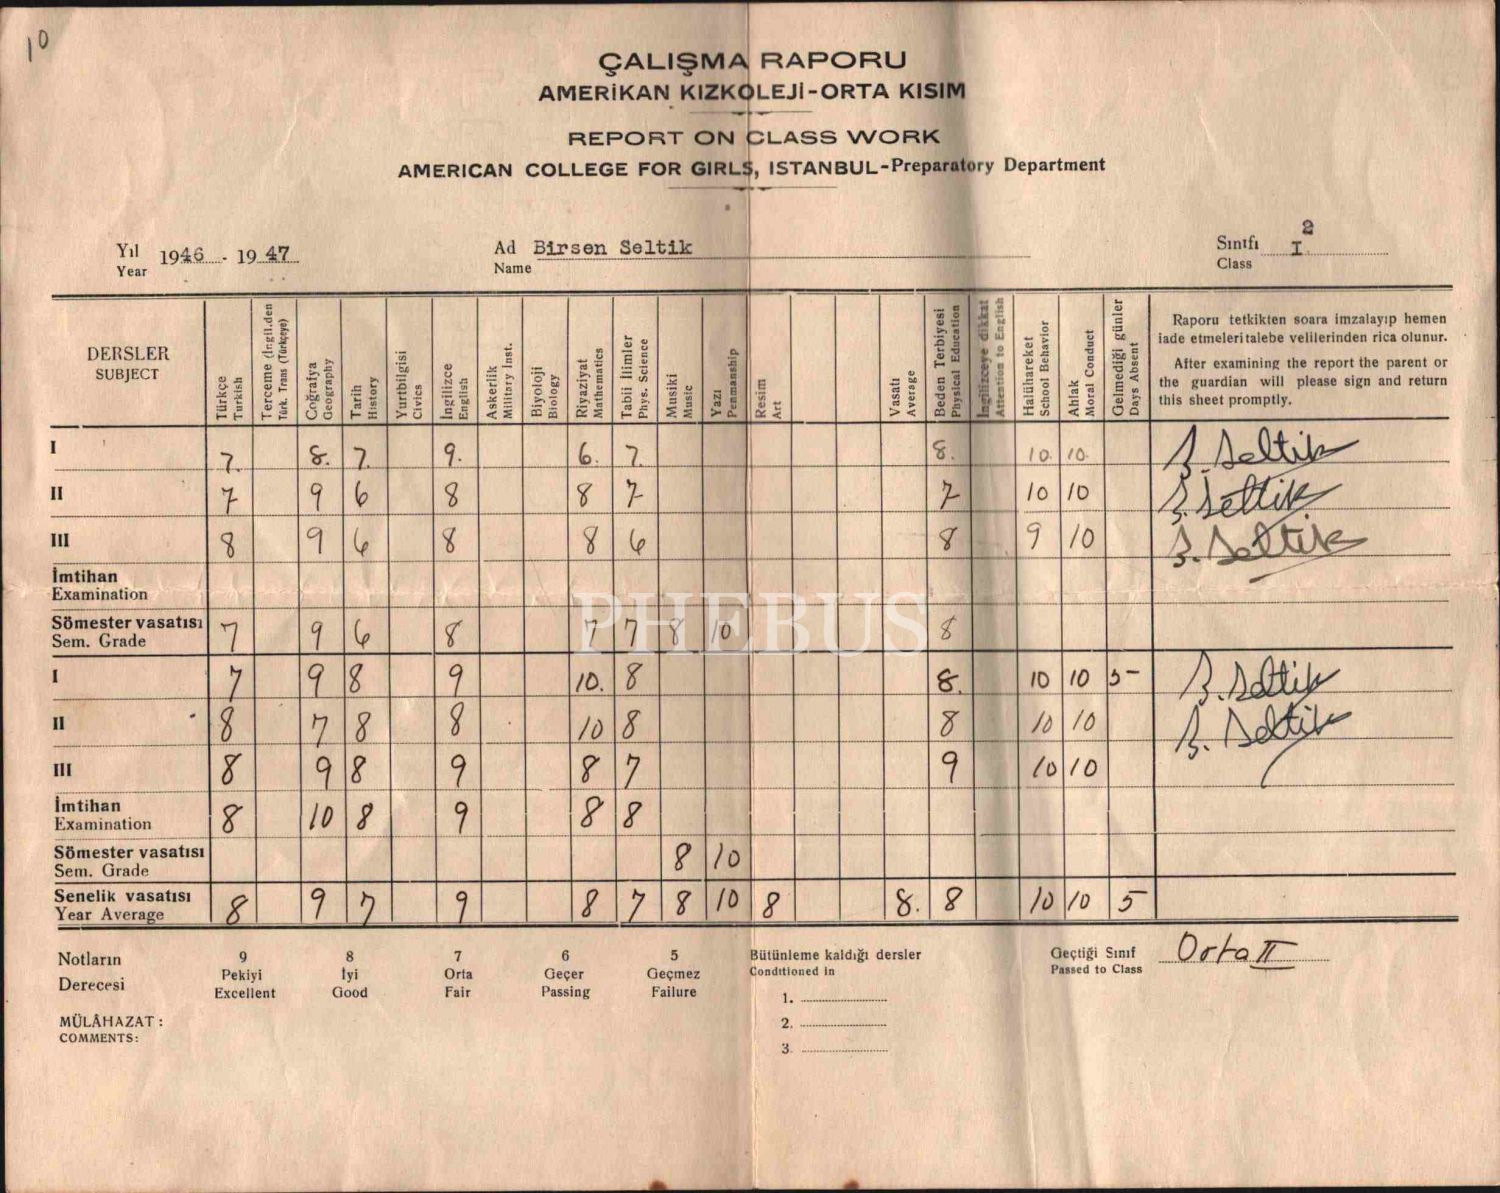 10
ÇALIŞMA RAPORU
AMERİKAN KIZKOLEJİ-ORTA KISIM
REPORT ON CLASS WORK
AMERICAN COLLEGE FOR GIRLS, ISTANBUL-Preparatory Department
Yıl 1946 - 1947 Ad Birsen Seltik Sınıfı I 2
Year Name Class
DERSLER
SUBJECT
Türkçe
Turkish
Terceme (İngil.den
Türk. Trans (Türkçeye)
Coğrafya
Geography
Tarih
History
Yurtbilgisi
Civics
İngilizce
English
Askerlik
Military Inst.
Biyoloji
Biology
Riyaziyat
Mathematics
Tabii İlimler
Phys. Science
Musiki
Music
Yazı
Penmanship
Resim
Art
Vasatı
Average
Beden Terbiyesi
Physical Education
İngilizceye dikkat
Attention to English
Halühareket
School Behavior
Ahlak
Moral Conduct
Gelmediği günler
Days Absent
Raporu tetkikten soara imzalayıp hemen
iade etmeleri talebe velilerinden rica olunur.
After examining the report the parent or
the guardian will please sign and return
this sheet promptly.
I 7. 8. 7. 9. 6. 7. 8. 10. 10. B. Seltik
II 7 9 6 8 8 7 7 10 10 B. Seltik
III 8 9 6 8 8 6 8 9 10 B. Seltik
İmtihan
Examination
Sömester vasatısı
Sem. Grade 7 9 6 8 7 7 8 10 8
PHEBUS
I 7 9 8 9 10. 8 8. 10 10 5- B. Seltik
II 8 7 8 8 10 8 8 10 10 B. Seltik
III 8 9 8 9 8 7 9 10 10
İmtihan
Examination 8 10 8 9 8 8
Sömester vasatısı
Sem. Grade 8 10
Senelik vasatısı
Year Average 8 9 7 9 8 7 8 10 8 8. 8 10 10 5
Notların 9 8 7 6 5 Bütünleme kaldığı dersler Geçtiği Sınıf Orta II
Derecesi Pekiyi İyi Orta Geçer Geçmez Conditioned in Passed to Class
Excellent Good Fair Passing Failure
1.
2.
3.
MÜLÂHAZAT :
COMMENTS: